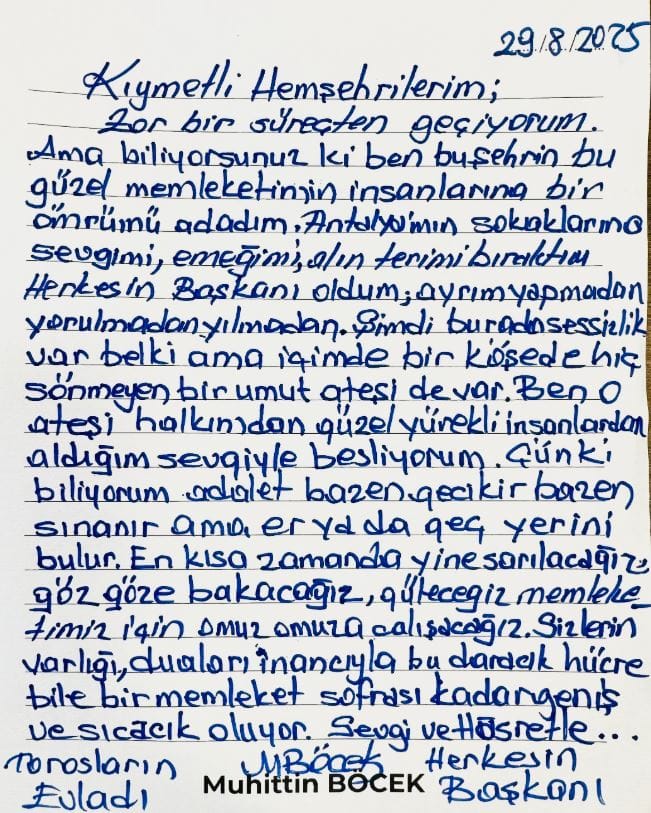 29/8/2025
Kıymetli Hemşehrilerim;
Zor bir süreçten geçiyorum.
Ama biliyorsunuz ki ben bu şehrin bu
güzel memleketimin insanlarına bir
ömrümü adadım. Antalya'mın sokaklarına
sevgimi, emeğimi, alın terimi bıraktım
Herkesin Başkanı oldum; ayrım yapmadan
yorulmadan yılmadan. Şimdi burada sessizlik
var belki ama içimde bir köşede hiç
sönmeyen bir umut ateşi de var. Ben O
ateşi halkımdan güzel yürekli insanlardan
aldığım sevgiyle besliyorum. Çünki
biliyorum adalet bazen gecikir bazen
sınanır ama er ya da geç yerini
bulur. En kısa zamanda yine sarılacağız,
göz göze bakacağız, gülecegiz memleke_
timiz için omuz omuza calışacağız. Sizlerin
varlığı, duaları inancıyla bu daracık hücre
bile bir memleket sofrası kadar geniş
ve sıcacık oluyor. Sevgi ve Hasretle...
Torosların MBöcek Herkesin
Evladı Muhittin BÖCEK Başkanı